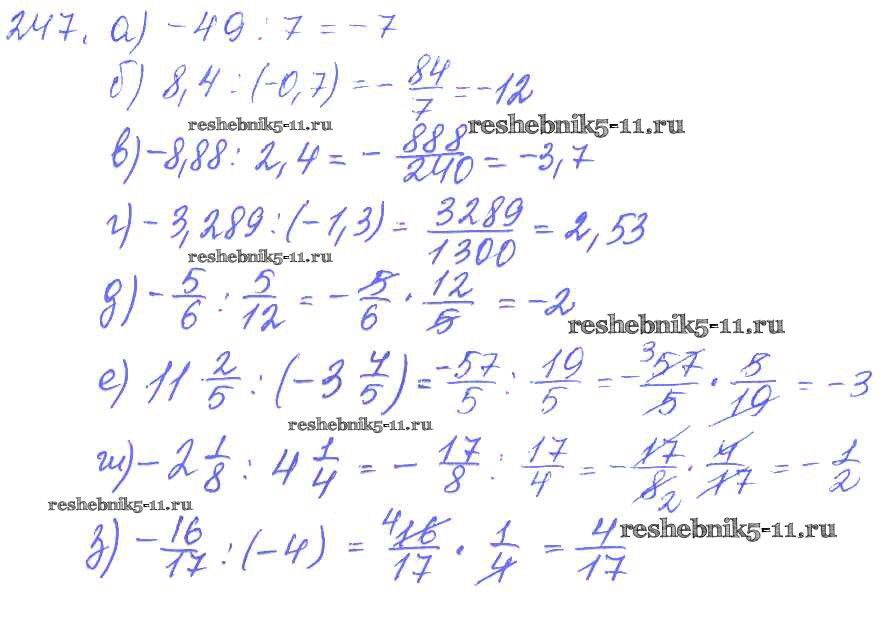 247. а) -49 : 7 = -7
б) 8,4 : (-0,7) = - 84/7 = -12
reshebnik5-11.ru reshebnik5-11.ru
в) -8,88 : 2,4 = - 888/240 = -3,7
г) -3,289 : (-1,3) = 3289/1300 = 2,53
reshebnik5-11.ru
д) - 5/6 : 5/12 = - 5/6 · 12/5 = -2
reshebnik5-11.ru
е) 11 2/5 : (-3 4/5) = -57/5 : 19/5 = - 3 57/5 · 5/19 = -3
reshebnik5-11.ru
ж) -2 1/8 : 4 1/4 = - 17/8 : 17/4 = - 17/8 2 · 4/17 = - 1/2
reshebnik5-11.ru
з) - 16/17 : (-4) = 4 16/17 · 1/4 = 4/17
reshebnik5-11.ru